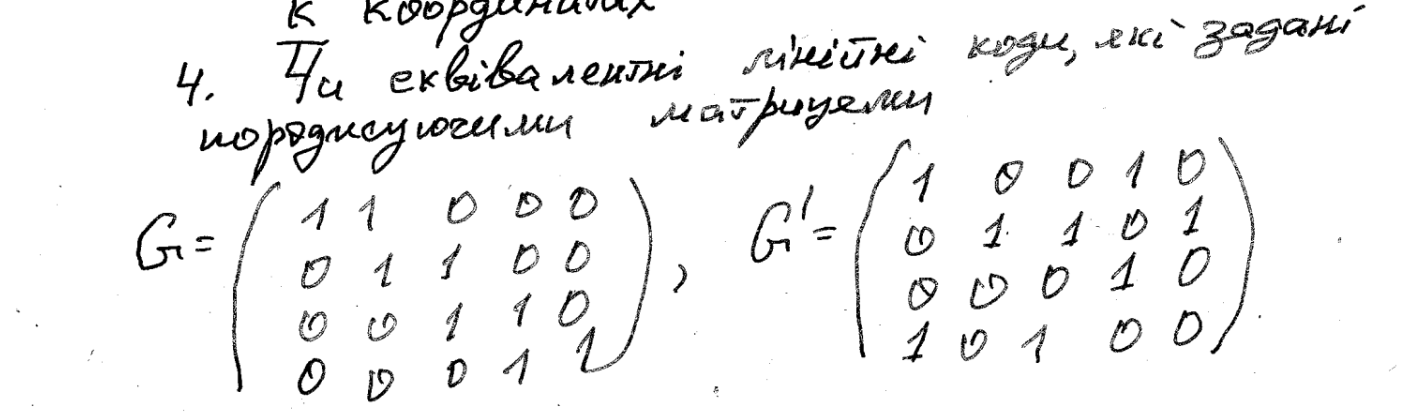 к координатах
4. Чи еквівалентні лінійні коди, які задані
породжуючими матрицями
G = ( 1 1 0 0 0 ) , G' = ( 1 0 0 1 0 )
( 0 1 1 0 0 ) ( 0 1 1 0 1 )
( 0 0 1 1 0 ) ( 0 0 0 1 0 )
( 0 0 0 1 1 ) ( 1 0 1 0 0 )